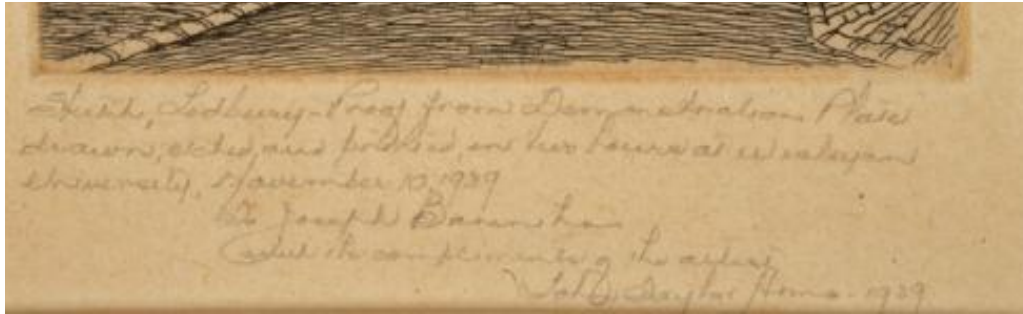 Sketch, Ledbury - Proof from Demonstration Plate
drawn, etched, and printed, in two hours at Wesleyan
University, November 10, 1939
To Joseph
with the compliments of the artist
John Taylor Arms - 1939